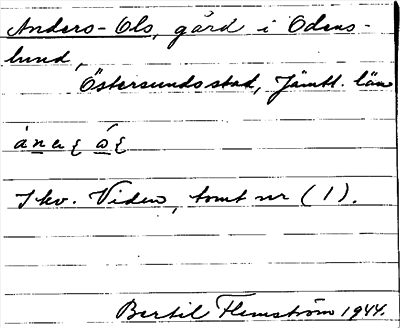 Anders-Ols, gård i Odens-
lund,
Östersunds stad, Jämtl. län
I kv. Viden, tomt nr (1).
Bertil Flemström 1944.